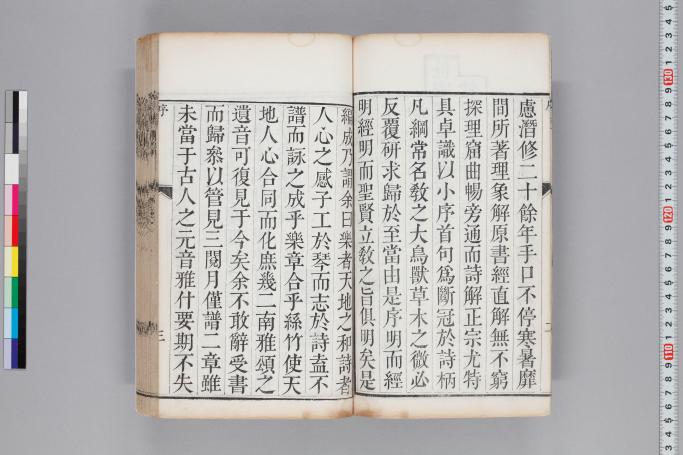 慮潛修二十餘年手口不停寒暑靡
間所著理象解原書經直解無不窮
探理窟曲暢旁通而詩解正宗尤特
具卓識以小序首句爲斷冠於詩柄
凡綱常名教之大鳥獸草木之微必
反覆研求歸於至當由是序明而經
明經明而聖賢立教之旨俱明矣是
編成乃謂余曰樂者天地之和詩者
人心之感子工於琴而志於詩盍不
譜而詠之成乎樂章合乎絲竹使天
地人心合同而化庶幾二南雅頌之
遺音可復見于今矣余不敢辭受書
而歸叅以管見三閱月僅譜二章雖
未當于古人之元音雅什要期不失
序
三
序
二
110
120
130